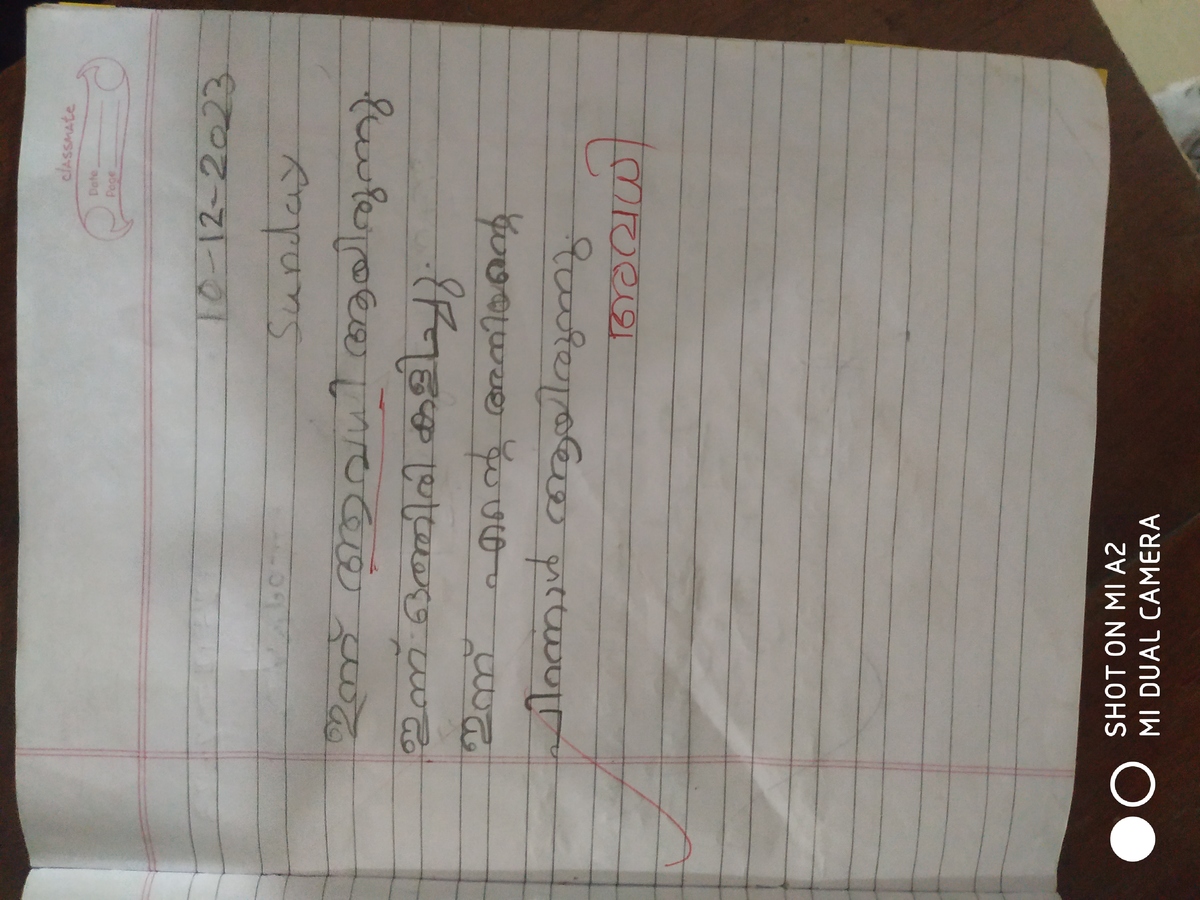 classmate
Date
Page
10-12-2023
Sunday
ഇന്ന് ആവധി ആയിരുന്നു.
ഇന്ന് ഒത്തിരി കളിച്ചു.
ഇന്ന് എന്റെ അനിയന്റെ
പിറന്നാൾ ആയിരുന്നു.
അവധി
SHOT ON MI A2
MI DUAL CAMERA